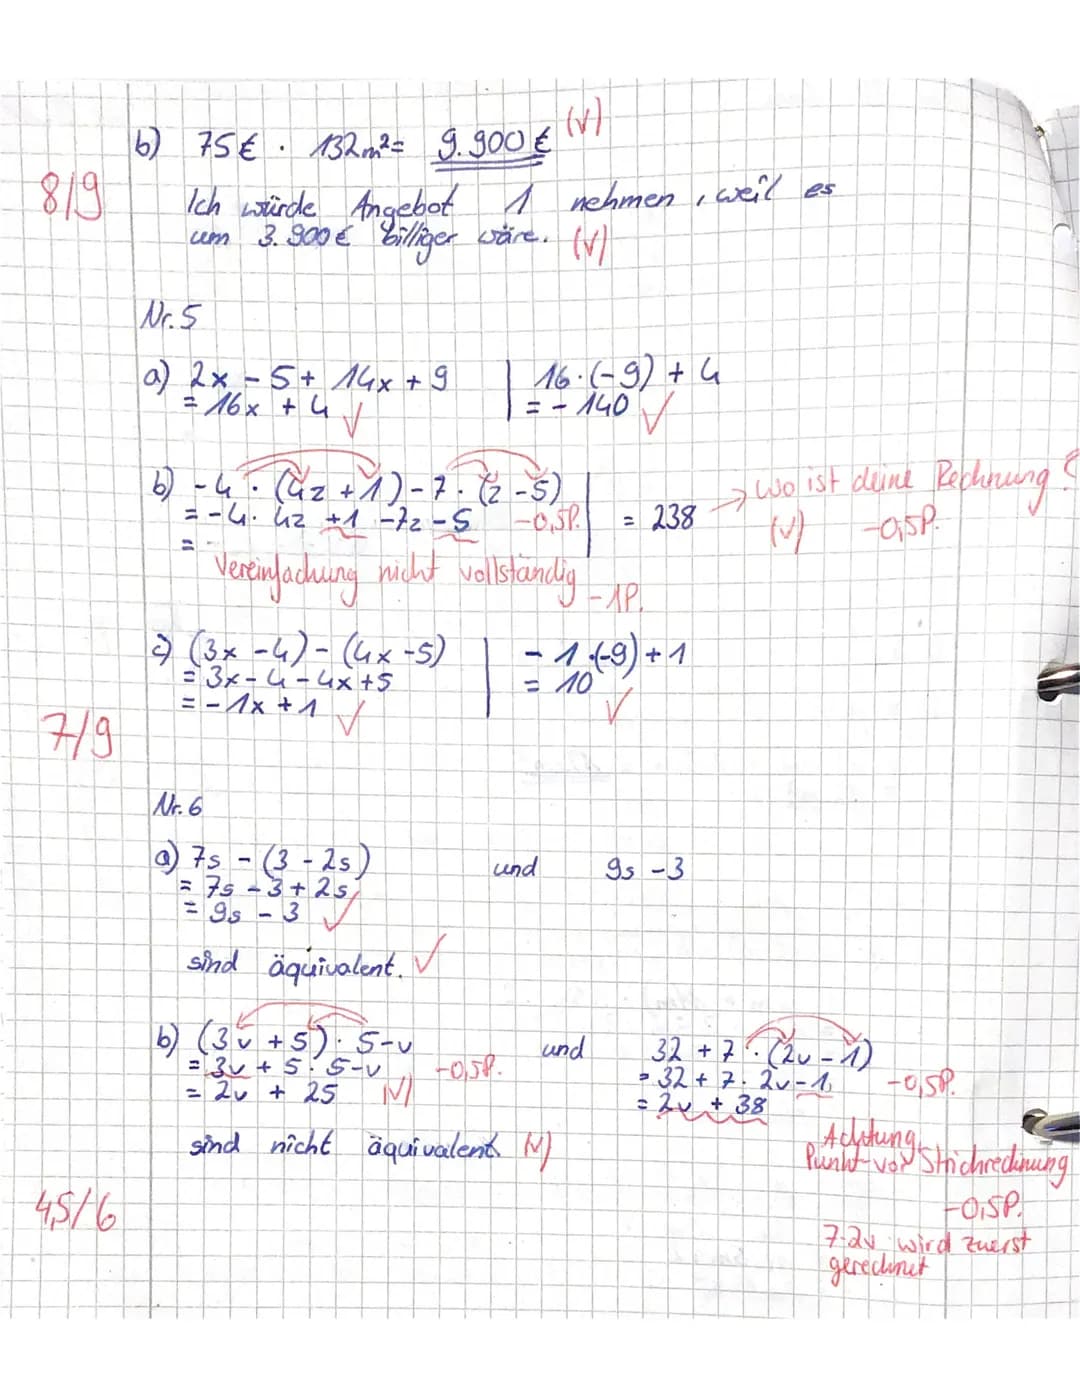 b) 75€ · 132m²= 9.900€ (√)
8/9
Ich würde Angebot 1 nehmen, weil es
um 3.900€ billiger wäre. (√)
Nr. 5
a) 2x - 5 + 14x + 9 | 16·(-9) + 4
= 16x + 4 √ | = - 140 √
b) -4 · (4z + 1) - 7 · (z - 5)
= -4 · 4z +1 -7z - 5 -0,5P. | = 238 → Wo ist deine Rechnung?
= (√) -0,5P.
Vereinfachung nicht vollständig -1P.
c) (3x - 4) - (4x - 5) | - 1·(-9) + 1
= 3x - 4 - 4x + 5 | = 10 √
= - 1x + 1 √
7/9
Nr. 6
a) 7s - (3 - 2s) und 9s - 3
= 7s - 3 + 2s
= 9s - 3 √
sind äquivalent. √
b) (3v + 5) · 5 - v und 32 + 7 · (2v - 1)
= 3v + 5 · 5 - v -0,5P. = 32 + 7 · 2v - 1 -0,5P.
= 2v + 25 (√) = 2v + 38
sind nicht äquivalent (√)
Achtung,
Punkt-vor Strichrechnung
-0,5P.
4,5/6
7·2v wird zuerst
gerechnet